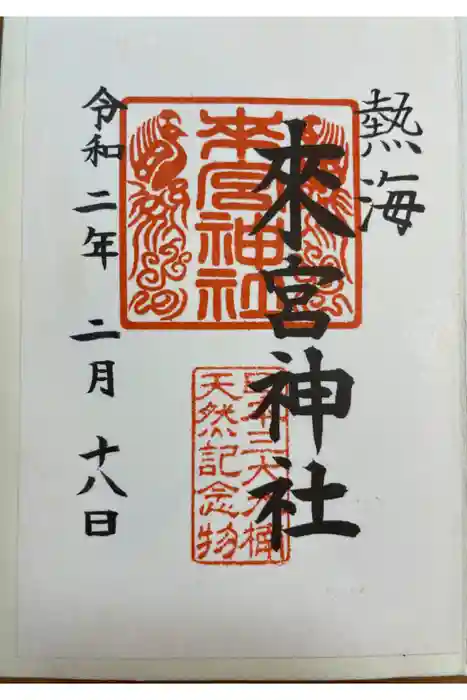 熱海
來宮神社
來宮神社
日本三大大楠
天然記念物
令和二年 二月 十八日